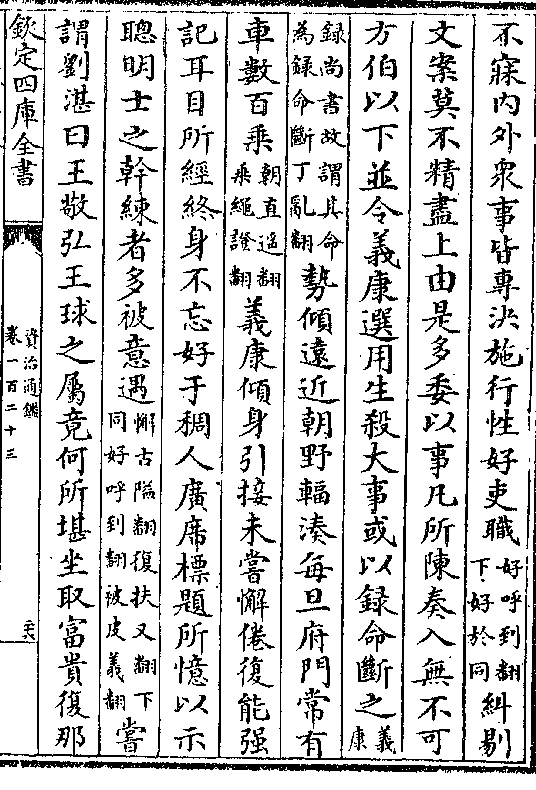 不寐内外衆事皆專决施行性好吏職好呼到翻下好於同糾剔
文案莫不精盡上由是多委以事凡所陳奏入無不可
方伯以下並令義康選用生殺大事或以録命斷之義康
録尚書故謂其命為録命斷丁亂翻勢傾遠近朝野輻湊每旦府門常有
車數百乘朝直遥翻乘繩證翻義康傾身引接未嘗懈倦復能强
記耳目所經終身不忘好于稠人廣席標題所憶以示
聰明士之幹練者多被意遇懈古隘翻復扶又翻下同好呼到翻被皮義翻嘗
謂劉湛曰王敬弘王球之屬竟何所堪坐取富貴復那
欽定四庫全書
資治通鑑
卷一百二十三
二六